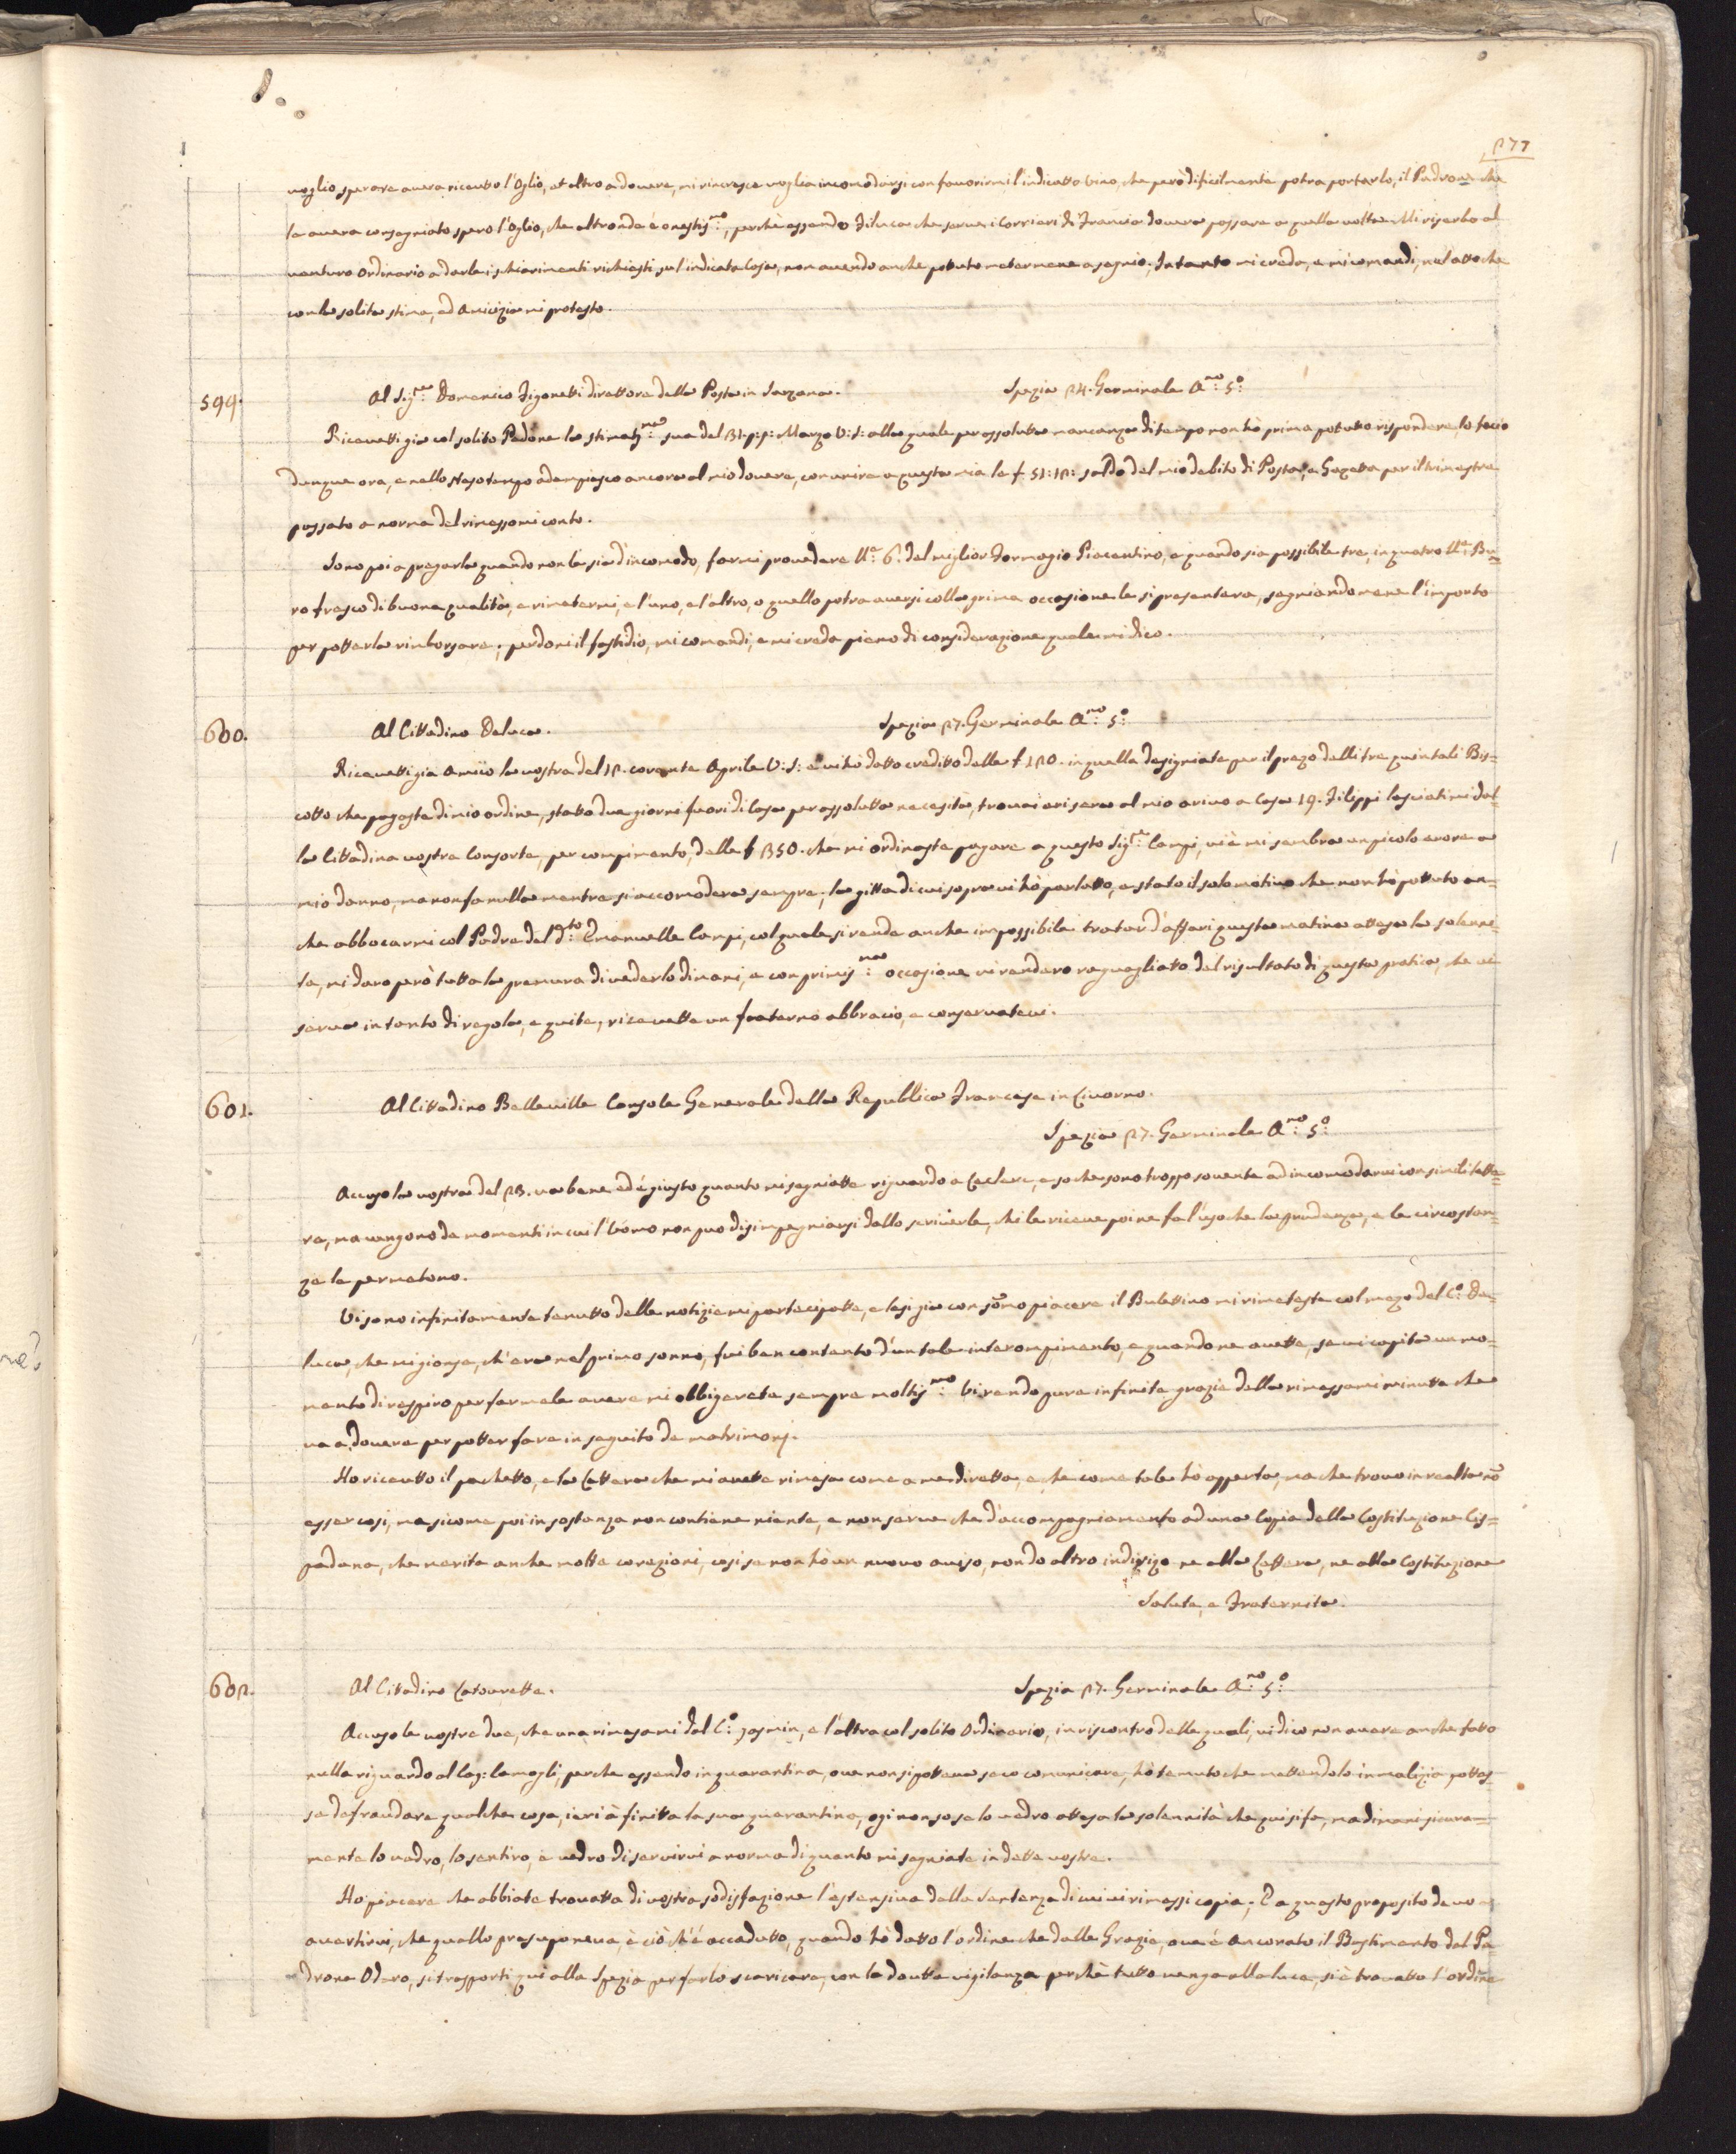 277
voglio sperare avera ricevuto l'Oglio, et altro a dovere, mi rincresce voglia incomodarsi con favorirmi l'indicatto vino, che però dificilmente potra portarlo, il Padrone che
le avera consegniato spero l'Oglio, che altronde è onestis.mo, perchè essendo Filuca che serve i Corrieri di Francia dovera passare a quella volta. Mi riserbo al
venturo ordinario a darle i schiarimenti richiesti sul'indicata Cosa, non avendo anche potuto metermene a segnio. Intanto mi creda, e mi comandi, nel atto che
con la solita stima, ed amicizia mi protesto.
599. Al Sig.re Domenico Zigonetti direttore della Posta in Sarzana. Spezia 24. Germinale A.no 5.o
Ricevetti gia col solito Pedone la stimatis.ma sua del 31. p: p: Marzo V: S: alla quale per assolutta mancanza di tempo non hò prima potutto rispondere, lo facio
dunque ora, e nello steso tempo adempiesco ancora al mio dovere, con unire a questa mia le £ 51:12: saldo del mio debito di Posta, e Gazetta per il trimestre
passato a norma del rimessomi conto.
Sono poi a pregarla quando non le sia d'incomodo, farmi provedere ll.e 6. del miglior Formagio Piacentino, e quando sia possibile tre, in quatro ll.e Bu=
ro fresco di buona qualità, e rimetermi, e l'uno, e l'altro, o quello potra aversi colla prima occasione le si presentera, segniandomene l'importo
per potterla rimborsare; perdoni il fastidio, mi comandi, e mi creda pieno di considerazione quale mi dico.
600. Al Cittadino Deluca. Spezia 27. Germinale A.no 5.o
Ricevetti gia Amico la vostra del 12. corente Aprile V: S: e vi hò datto creditto delle £ 120. in quella designiate per il prezo delli tre quintali Bis=
cotto che pagaste di mio ordine, statto due giorni fuori di Casa per assolutta necesità, trovai ari sera al mio arivo a Casa 19. Filippi lasciatimi dal=
la Cittadina vostra Consorte, per compimento, delle £ 350. che mi ordinaste pagare a questo Sig.re Campi, vi è mi sembra un picolo erore a
mio danno, ma non fa nulla mentre si accomodera sempre; la gitta di cui sopra vi hò parlatto, e stato il solo motivo che non hò pottuto an=
che abbocarmi col Padre del d.to Emanuelle Campi, col quale si rende anche impossibile tratar d'affari questa matina attesa la solenni=
ta, mi daro però tutta la premura di vederlo dimani, e con primis.ma occasione vi rendero raguagliatto del risultato di questa pratica, che vi
serva in tanto di regola, e quite, ricevette un fraterno abbracio, e conservatevi.
601. Al Cittadino Belleville Console Generale della Republica Francese in Livorno.
Spezia 27. Germinale A.no 5.o
Accuso la vostra del 23. va bene ed è giusto quanto mi segniatte riguardo a Leclerc, e so che sono troppo sovente ad incomodarvi con simili lette=
re, ma vengono de momenti in cui l'Uomo non puo disimpegniarsi dallo scriverle, chi le riceve poi ne fa l'uso che la prudenza, e le circostan=
ze le permetono.
Vi sono infinitamente tenutto delle notizie mi partecipatte, e lesi gia con somo piacere il Bulettino mi rimeteste col mezo del C.o De=
luca, che mi gionse, ch'era nel primo sonno, fui ben contento d'un tale interompimento, e quando ne avette, se vi capita un mo=
mento di respiro per farmele avere mi obbligerete sempre moltis.mo Vi rendo pure infinite grazie della rimessami minutta che
va a dovere per potter fare in seguito de matrimonj.
Ho ricevutto il pachetto, e la Lettera che mi avette rimesa come a me diretta, e che come tale hò apperta, ma che trovo in realta nõ
esser cosi, ma sicome poi in sostanza non contiene niente, e non serve che d'accompagniamento ad una Copia della Costituzione Cis=
padana, che merita anche molte corezioni, cosi se non hò un nuovo aviso, non do altro indirizo ne alla Lettera, ne alla Costituzione
Salute, e Fraternita.
602. Al Cittadino Latourette. Spezia 27. Germinale A.no 5.o
Accuso le vostre due, che una rimesami dal C.o Josmin, e l'altra col solito Ordinario, in riscontro delle quali, vi dico non avere anche fatto
nulla riguardo al Cap: Camogli, perche essendo in quarantina, ove non si potteva seco comunicare, hò temuto che mettendolo in malizia pottes=
se defraudare qualche cosa, ieri à finitta la sua quarantina, ogi non so se lo vedro attesa la solennità che qui si fa, ma dimani sicura=
mente lo vedro, lo sentiro, e vedro di servirvi a norma di quanto mi segniate in dette vostre.
Ho piacere che abbiate trovatta di vostra sodisfazione l'estensiva della Sentenza di cui vi rimessi copia; E a questo proposito devo
avertirvi, che quello presuponeva, è ciò ch'è accadutto, quando hò datto l'ordine che dalle Grazie, ove è Ancorato il Bastimento del Pa=
drone Odero, si trasporti qui alla Spezia per farlo scaricare, con la dovutta vigilanza perchè tutto venga alla luce, si è trovatto l'ordine